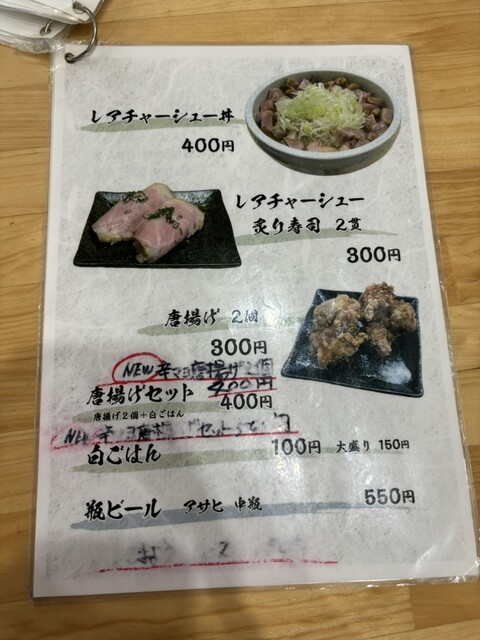 レアチャーシュー丼
400円
レアチャーシュー
炙り寿司 2貫
300円
唐揚げ 2個
300円
NEW 辛マヨ唐揚げ2個
400円
唐揚げセット
400円
唐揚げ2個+白ごはん
NEW 辛 唐揚げセット
白ごはん 100円 大盛り 150円
瓶ビール アサヒ 中瓶 550円